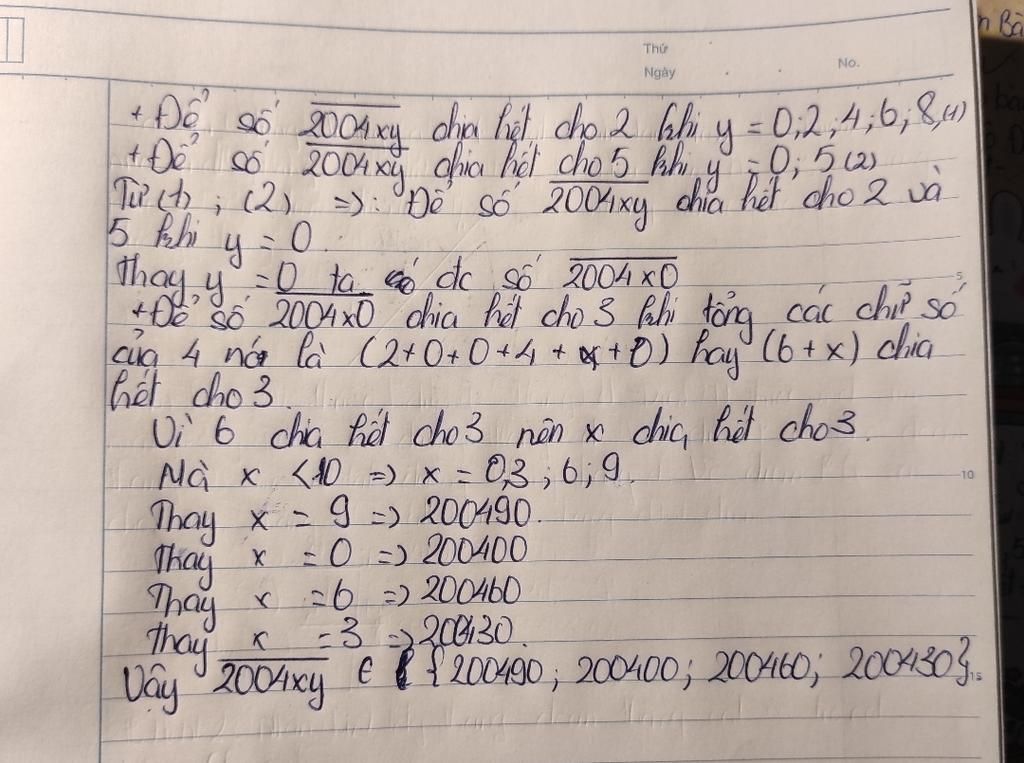 Thứ
Ngày . . No.
n Bà
+ Để số 2004xy chia hết cho 2 khi y = 0; 2; 4; 6; 8 (1)
+ Để số 2004xy chia hết cho 5 khi y = 0; 5 (2)
Từ (1); (2) => : Để số 2004xy chia hết cho 2 và
5 khi y = 0.
Thay y = 0 ta đc số 2004x0
+ Để số 2004x0 chia hết cho 3 khi tổng các chữ số
của nó là (2+0+0+4+x+0) hay (6+x) chia
hết cho 3.
Vì 6 chia hết cho 3 nên x chia hết cho 3.
Mà x <10 => x = 0,3; 6; 9.
Thay x = 9 => 200490.
Thay x = 0 => 200400
Thay x = 6 => 200460
Thay x = 3 => 200430.
Vậy 2004xy ∈ {200490; 200400; 200460; 200430}.
5
10
15